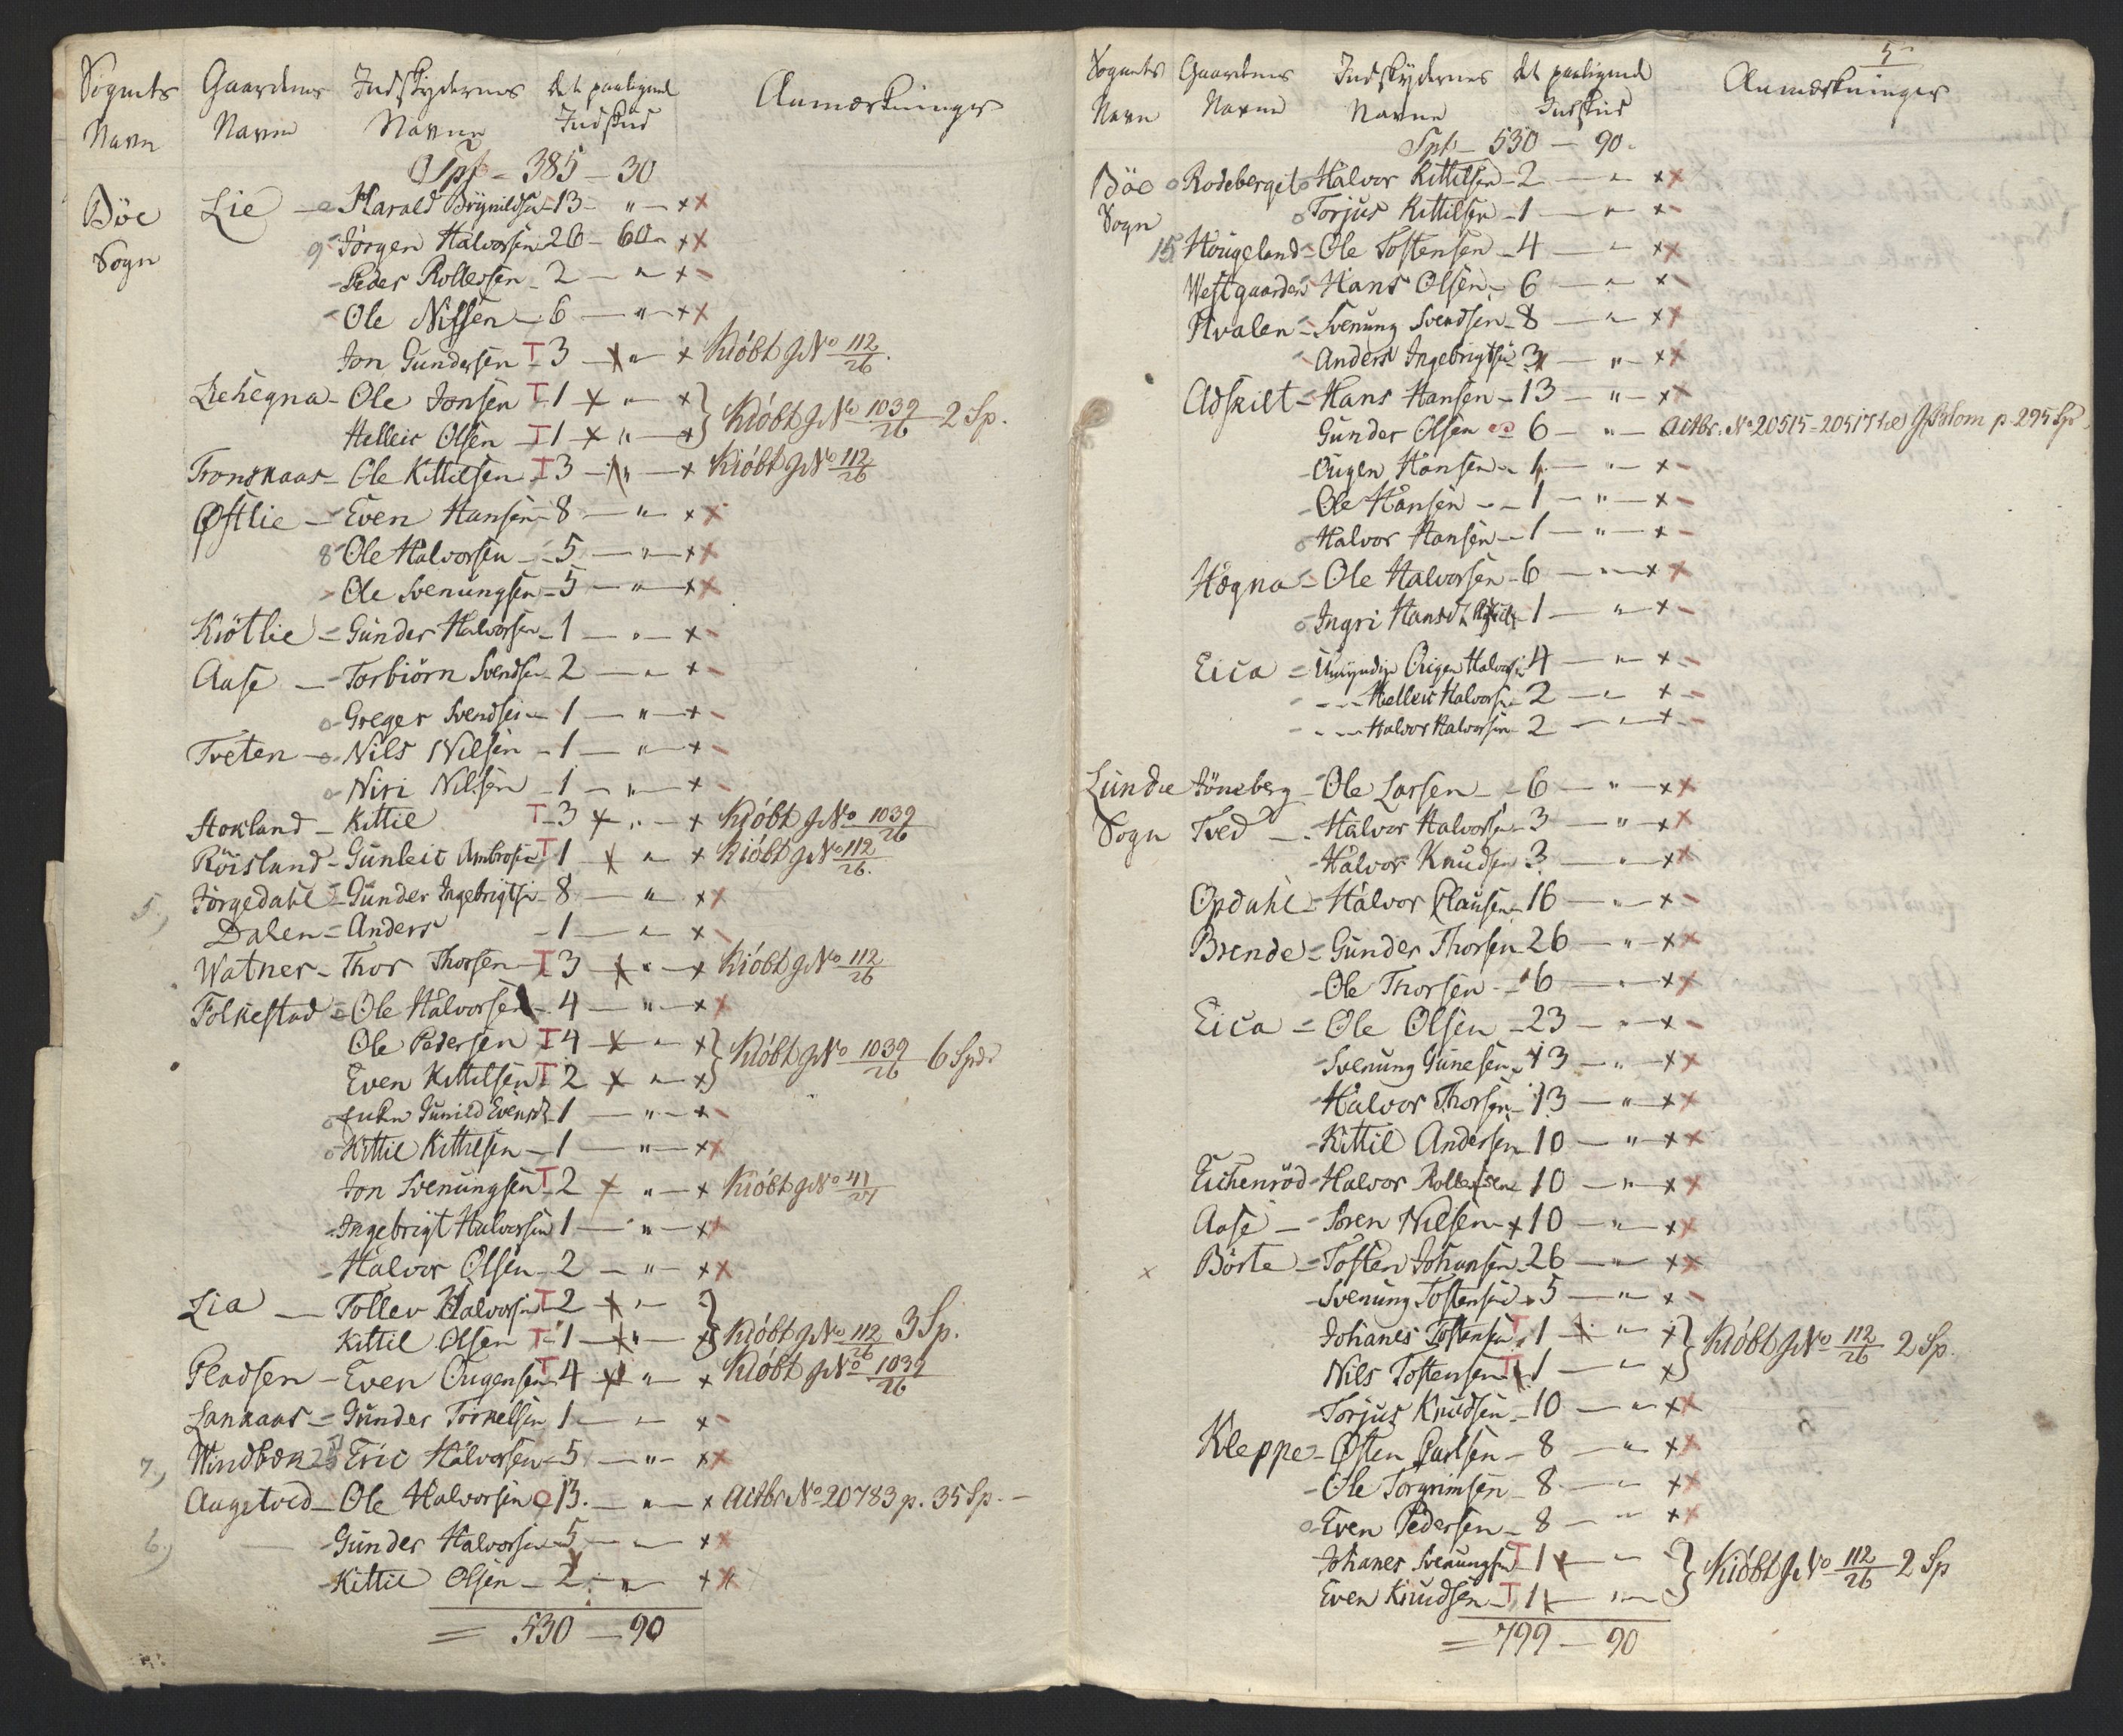 Sognets Gaardenes Indskydernes det paaligende Anmærkninger
Navn Navne Navne Indskud
Spd - 385 - 30
Böe Lie - Harald Brynildsen - 13 - " - x x
Sogn 9 Jörgen Halvorsen 26 - 60 - x x
- Peder Rollefsen - 2 - " - x -
- Ole Nilsen - 6 - " - x x
Jon Gundersen T 3 - x " - x Kióbt J No 112/26.
Liehegna - Ole Jonsen T 1 x " - x } Kióbt J No 1039/26 2 Sp.
Helleic Olsen - T 1 - x " - x }
Tronskaas - Ole Kittilsen T 3 - x " - x Kióbt J No 112/26
Østlie - Even Hansen - 8 - " - x x
8 Ole Halvorsen - 5 - " - x x
- Ole Svenungsen - 5 - " - x x
Kiötlie - Gunder Halvorsen - 1 - " - x -
Aase - Torbiörn Svendsen 2 - " - x -
o - Greger Svendsen - 1 - " - x -
Tveten - o - Nils Nilsen - 1 - " - x -
o - Niri Nilsen - 1 - " - x -
Hokland - Kittil T - 3 x " - x Kióbt J No 1039/26
Röisland - Gunleic Ambrosen T 1 - x " - x Kióbt J No 112/26.
5.) Jörgedahl - Gunder Ingebrigtsen - 8 - " - x x
Dalen = Anders - 1 - " - x -
Watner - Thor Thorsen - T 3 - x " - x Kióbt J No 112/26
Folkestad = Ole Halvorsen - 4 - " - x x
Ole Pedersen T 4 - x " - x } Kióbt J No 1039/26 6 Spd
Even Kittilsen T 2 x " - x }
o Enken Gunild Evensd. 1 - " - x -
o - Kittil Kittilsen - 1 - " - x x
Jon Svenungsen T 2 x " - x Kióbt J No 41/27
- Ingebrigt Halvorsen 1 - " - x x
- Halvor Olsen - 2 - " - x x
Lia - Tollev Halvorsen T 2 x " - }
Kittil Olsen T - 1 - x " - x } Kióbt J No 112/26 3 Sp.
Pladsen - Even Ougensen T 4 x " - x Kióbt J No 1039/26
Lankaas = Gunder Torkelsen 1 - " - x -
7.) Windbek - Eric Halvorsen - 5 - " - x x
Augetved - Ole Halvorsen o 13. - " - x Actbr No 20783 p. 35 Sp. -
6.) - Gunder Halvorsen - 5 - " - x x
- Kittil Olsen - 2 - " - x x
= 530 - 90
5
Sognets Gaardenes Indskydernes det paaligende Anmærkninger
Navn Navne Navne Indskud
Spd - 530 - 90.
Böe o Rodeberget o Halvor Kittilsen - 2 - " - x x
Sogn o Torjus Kittilsen - 1 - " - x -
15 Hougeland - Ole Tostensen - 4 - " - x x
Westgaarden Hans Olsen - 6 - " - x -
Hvalen - Svenung Svendsen - 8 - " - x x
- Anders Ingebrigtsen 3 - " - x x
Adskilt - Hans Hansen - 13 - " - x x
Gunder Olsen 6 - " - Actbr. No 20515 - 20517 ved J Blom p. 295 Sp.
- Ougen Hansen - 1 - " - x -
- Ole Hansen - 1 - " - x -
o Halvor Hansen - 1 - " - x -
Högna - Ole Halvorsen - 6 - " - x x
o Ingri Hansd. 1 - " - x -
Eica = Umyndige Ougen Halvorsen 4 - " - x -
- - - Helleic Halvorsen 2 - " - x -
- - - Halvor Halvorsen 2 - " - x -
Lunde Jöneberg - Ole Larsen - 6 - " - x x
Sogn Tved - - Halvor Halvorsen - 3 - " - x x
- Halvor Knudsen 3 - " - x x
Opdahl - Halvor Clausen - 16 - " - x -
Brende = Gunder Thorsen 26 - " - x x
- Ole Thorsen - 6 - " - x x
Eica = Ole Olsen - 23 - " - x -
- Svenung Gunesen 13 - " - x x
- Halvor Thorsen - 13 - " - x x
- Kittil Andersen 10 - " - x x
Eichenröd - Halvor Rollefsen 10 - " - x x
Aase - - Soren Nilsen - x 10 - " - x x
x Börte - Tosten Johansen 26 - " - x x
- Svenung Tostensen 5 - " - x -
Johanes Tostensen T 1 - x " - x } Kióbt J No 112/26 2 Sp.
Nils Tostensen T 1 - " - x }
- Torjus Knudsen - 10 - " - x x
Kleppe - Østen Carlsen - 8 - " - x x
- Ole Torgrimsen - 8 - " - x x
o - Even Pedersen - 8 - " - x x
Johanes Svenungsen T 1 x - " - } Kióbt J No 112/26 2 Sp
Even Knudsen - T 1 x - " - }
= 799 - 90